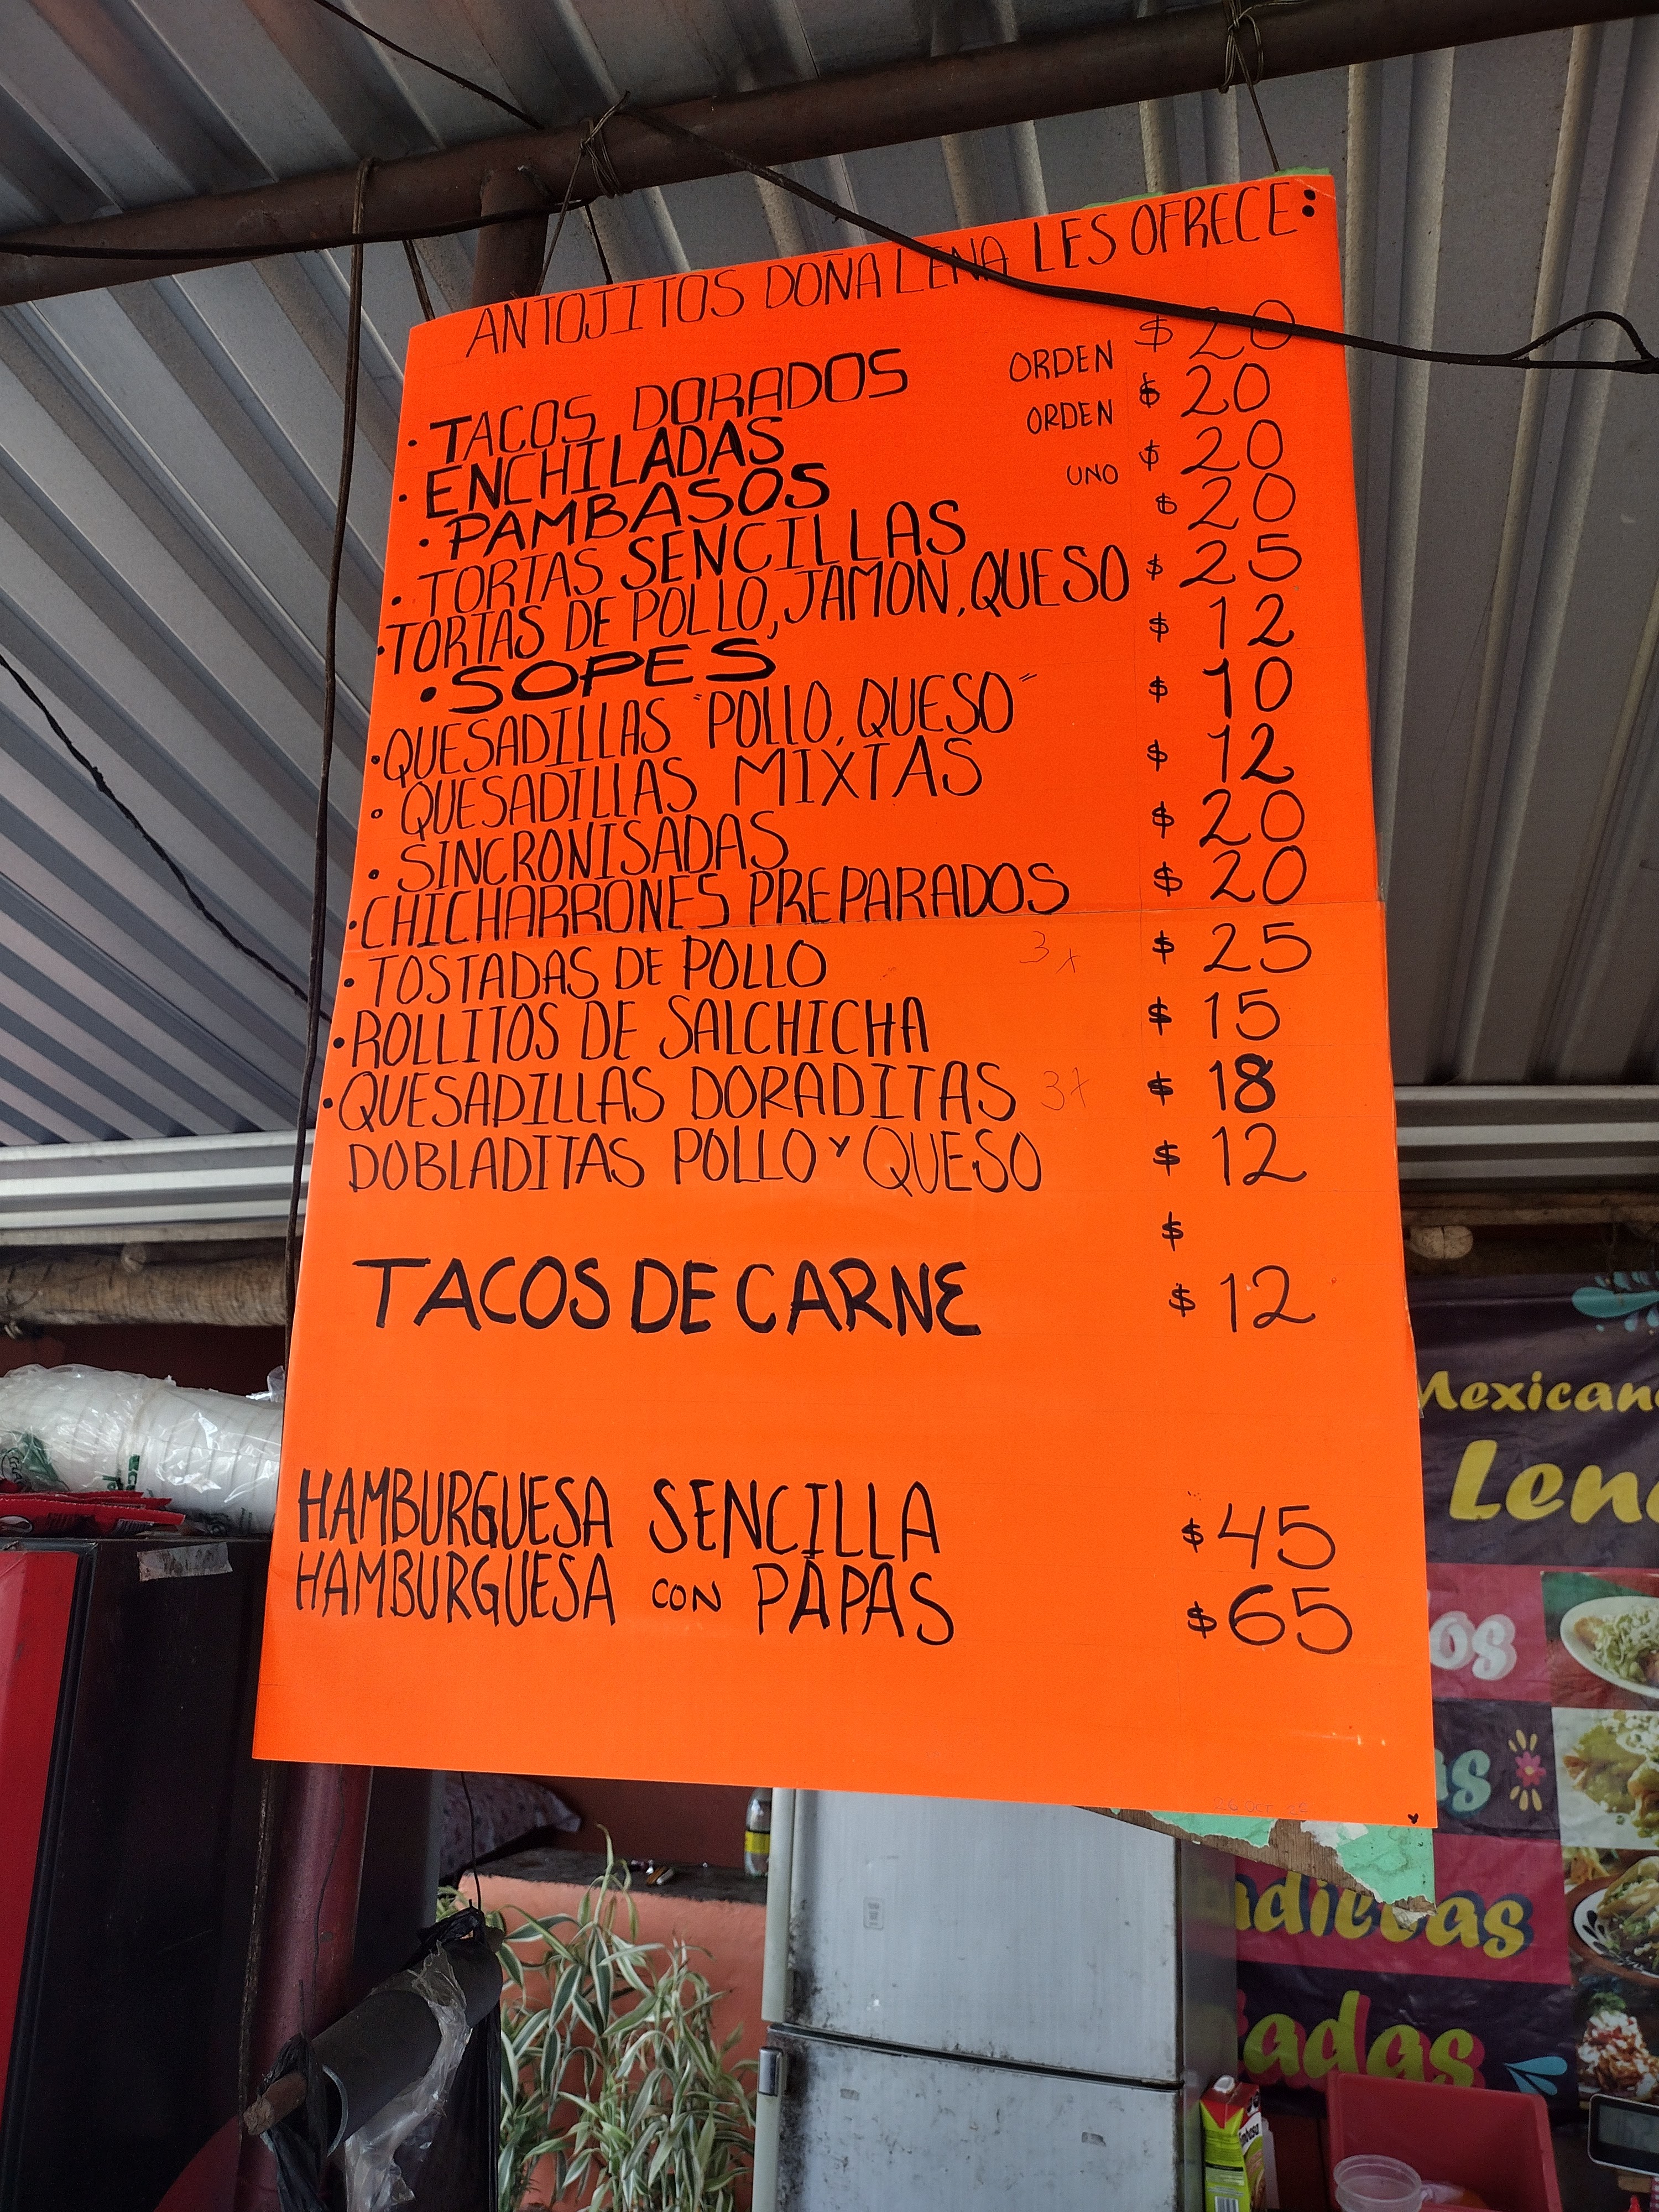 ANTOJITOS DOÑA LENA LES OFRECE:
• TACOS DORADOS ORDEN $ 20
• ENCHILADAS ORDEN $ 20
• PAMBASOS UNO $ 20
• TORTAS SENCILLAS $ 20
• TORTAS DE POLLO, JAMON, QUESO $ 25
• SOPES $ 12
• QUESADILLAS "POLLO, QUESO" $ 10
• QUESADILLAS MIXTAS $ 12
• SINCRONISADAS $ 20
• CHICHARRONES PREPARADOS $ 20
• TOSTADAS DE POLLO 3x $ 25
• ROLLITOS DE SALCHICHA $ 15
• QUESADILLAS DORADITAS 3x $ 18
DOBLADITAS POLLO Y QUESO $ 12
$
TACOS DE CARNE $ 12
HAMBURGUESA SENCILLA $ 45
HAMBURGUESA CON PAPAS $ 65
Mexican
Len
os
as
adillas
tadas